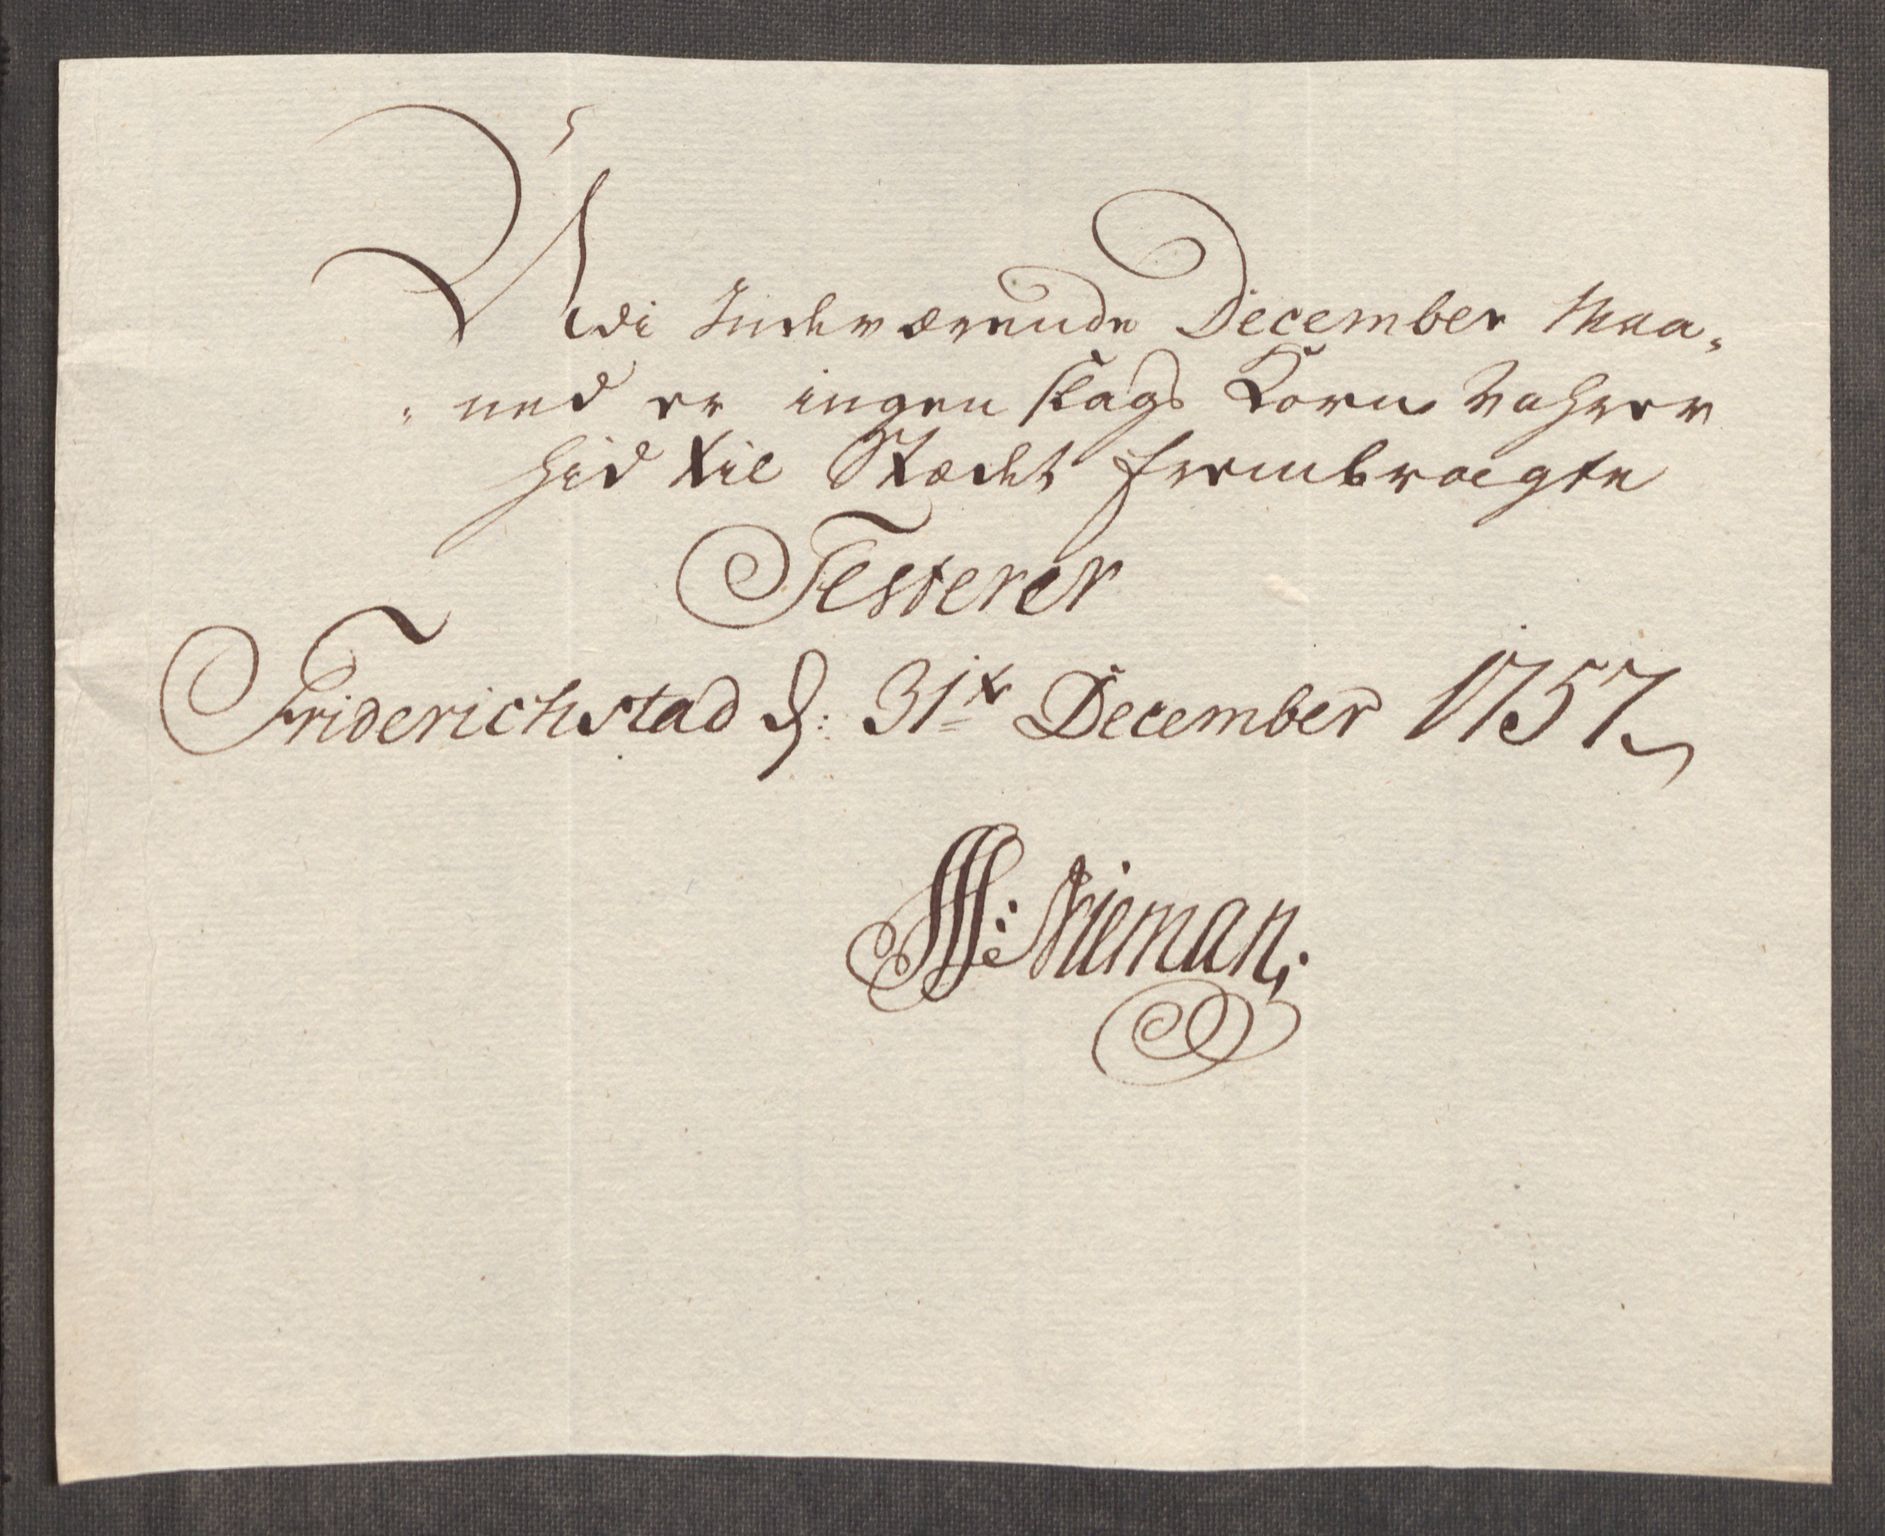 Udi Indeværende December Maa„
„ned er ingen slags Korn Vahrer
hid til Stædet frembragte
Testerer
Friderichstad d: 31te December 1757
Nieman